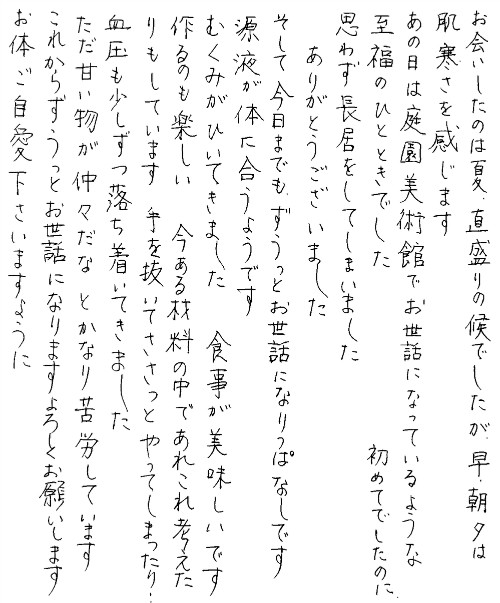 お会いしたのは夏、真盛りの候でしたが、早、朝夕は
肌寒さを感じます
あの日は庭園美術館でお世話になっているような
至福のひとときでした　初めてでしたのに、
思わず長居をしてしまいました
ありがとうございました
そして今日までも、ずうっとお世話になりっぱなしです
源液が体に合うようです
むくみがひいてきました　食事が美味しいです
作るのも楽しい　今ある材料の中であれこれ考えた
りもしています　手を抜いてささっとやってしまったり…
血圧も少しずつ落ち着いてきました
ただ甘い物が仲々だな　とかなり苦労しています
これからずうっとお世話になりますよろしくお願いします
お体ご自愛下さいますように